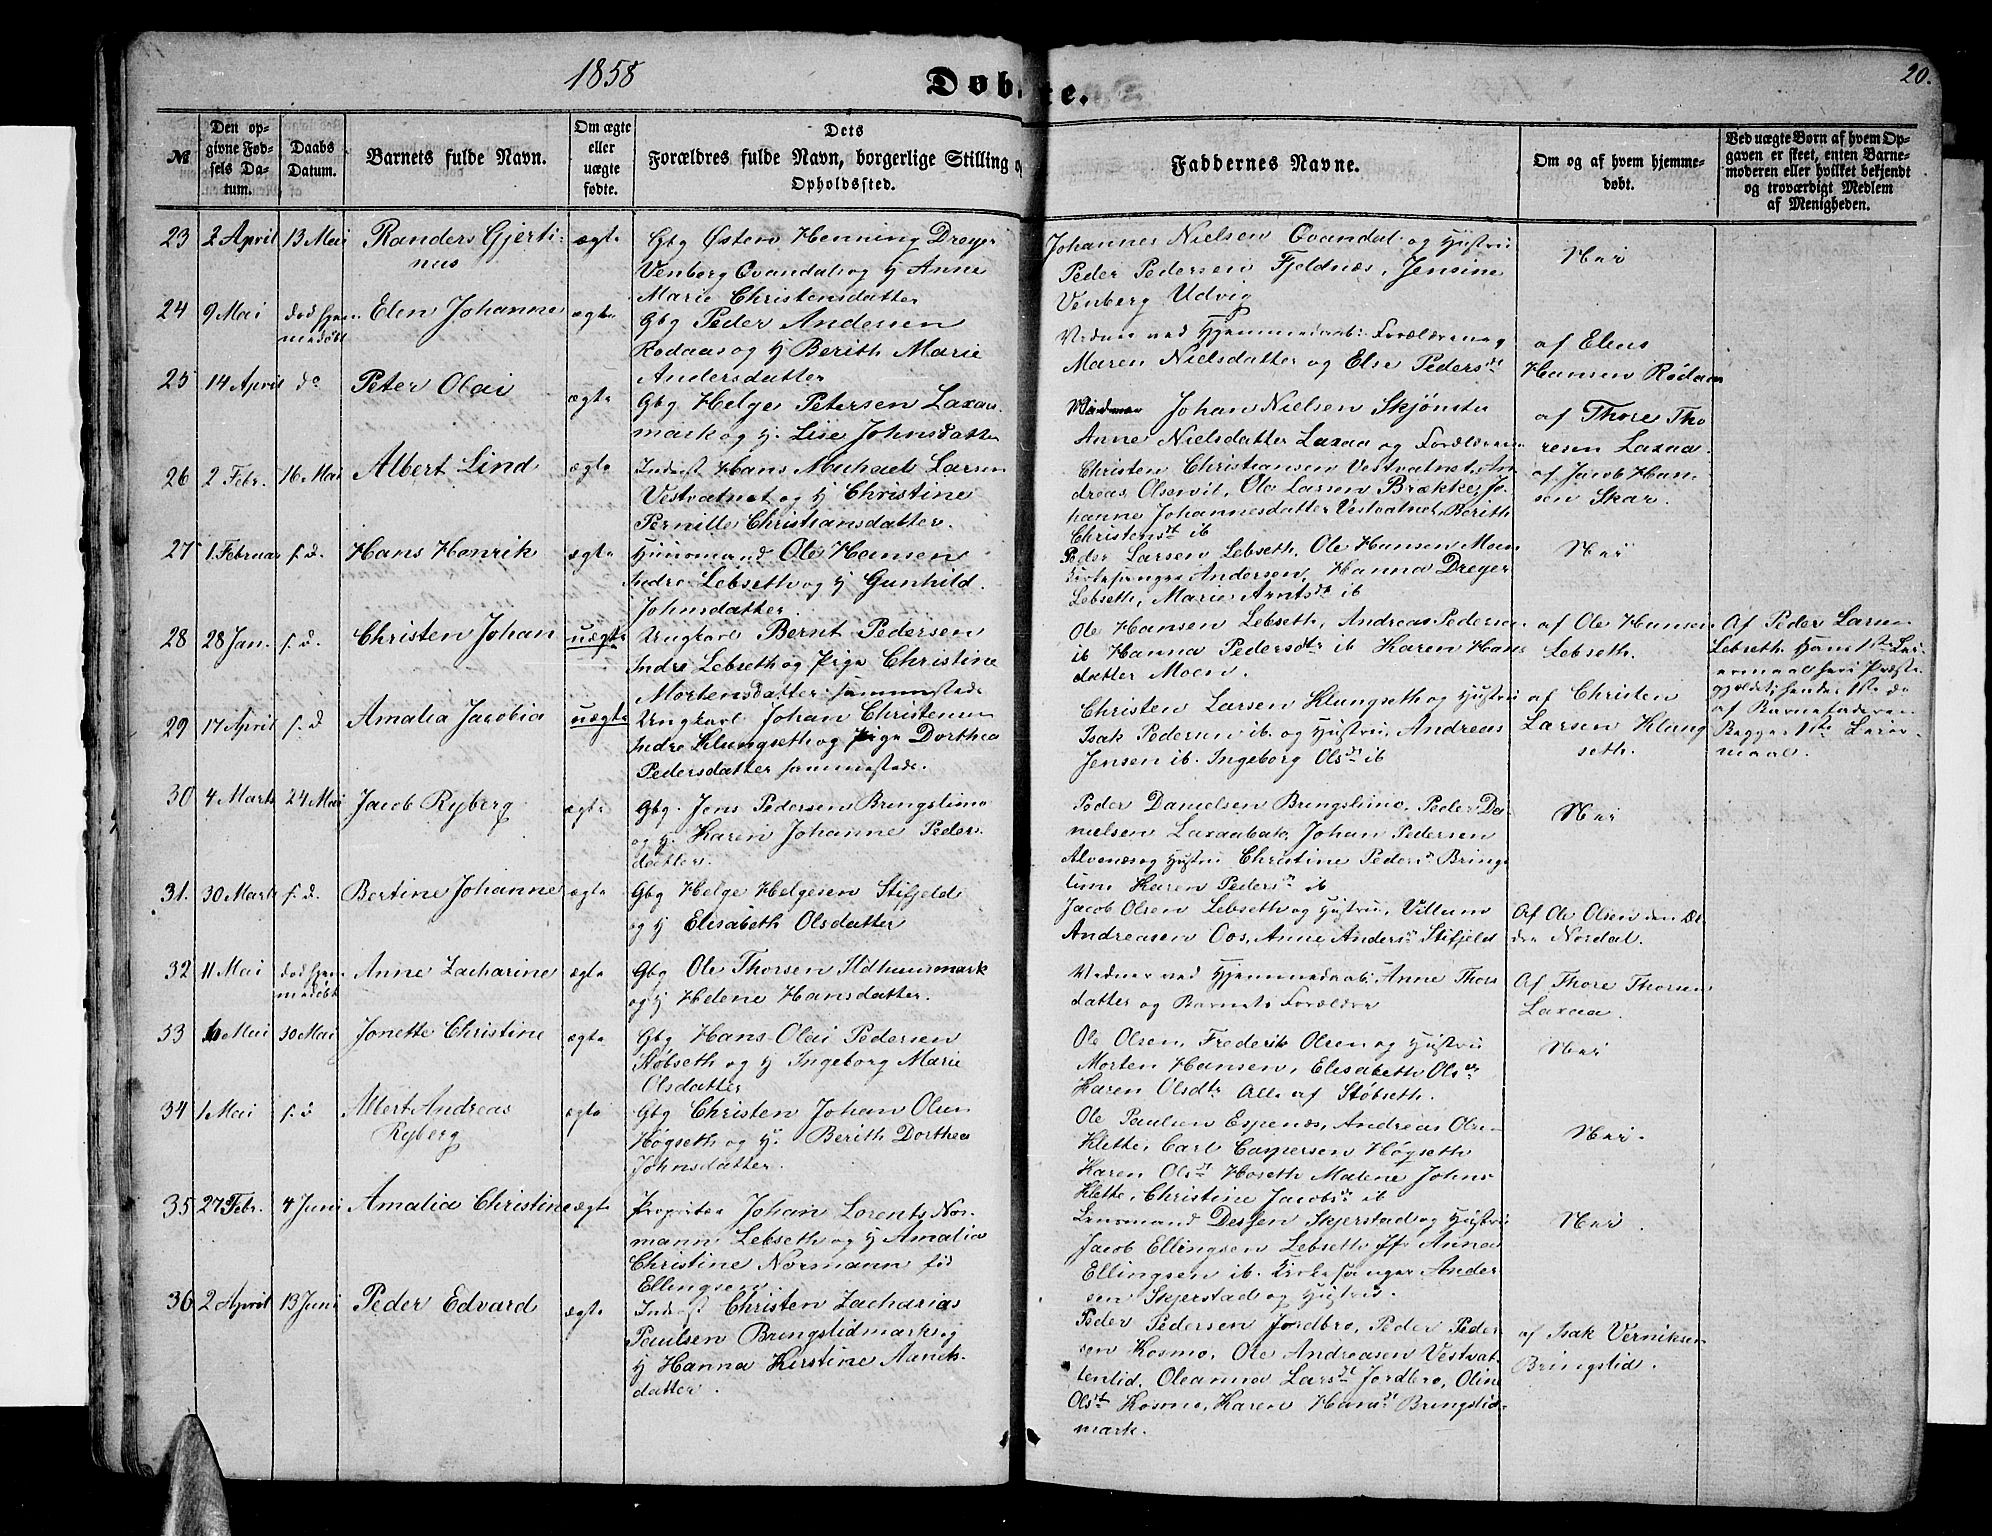 1858
Dobte.
20.
№
Den opgivne Fødsels Datum.
Daabs Datum.
Barnets fulde Navn.
Om ægte eller uægte fødte.
Dets Forældres fulde Navn, borgerlige Stilling o Opholdssted.
Faddernes Navne.
Om og af hvem hjemmedøbt.
Ved uægte Børn af hvem Opgaven er skeet, enten Barnemoderen eller hvilket bekjendt og troværdigt Medlem af Menigheden.
23 2 April 13 Mai Randers Gjerti-
nus
ægte
Gbg Østen Henning Dreyer
Venberg Qvandal og H Anne
Marie Christensdatter
Johannes Nielsen Qvandal og Hustru
Peder Pedersen Fjeldnæs, Jensine
Venberg Udvig
Nei
24 9 Mai død hjem-
medøbt
Elen Johanne ægte
Gbg Peder Andersen
Rødaas og H Berith Marie
Andersdatter
Vidner ved Hjemmedaab: Forældrene og
Maren Nielsdatter og Else Pedersdt
af Elens
Hansen Rødaas
25 14 April do Peter Olai ægte
Gbg Helge Petersen Laxaa-
mark og H. Lise Johnsdatter
Vidner Johan Nielsen Skjønsta
Anne Nielsdatter Laxaa og Forældrene
af Thore Tho
resen Laxaa.
26 2 Febr. 16 Mai Albert Lind ægte
Inderst Hans Michael Larsen
Vestvatnet og H Christine
Pernille Christiansdatter.
Christen Christiansen Vestvatnet, An
dreas Olsen ib, Ole Larsen Brække, Jo-
hanne Johannesdatter Vestvatnet, Berith
Christensdt ib
af Jacob Han
sen Skar.
27 1 Februar s. d. Hans Henrik ægte
Huusmand Ole Hansen
Indre Lebseth og H Gunhild
Johnsdatter.
Peder Larsen Lebseth, Ole Hansen Moen
Kirkesanger Andersen, Hanna Dreyer
Lebseth, Marie Arntsdt ib
Nei
28 28 Jan. s. d. Christen Johan uægte
Ungkarl Bernt Pedersen
Indre Lebseth og Pige Christine
Mortensdatter sammesteds
Ole Hansen Lebseth, Andreas Pedersen
ib Hanna Pedersdtr ib Karen Hans
datter Moen.
af Ole Hansen
Lebseth.
Af Peder Larsen
Lebseth Hans 1ste Lei
ermaal her i Præste
gjeldet; hendes 1ste do
29 17 April s. d Amalia Jacobia uægte
Ungkarl Johan Christensen
Indre Klungseth og Pige Dorthea
Pedersdatter sammesteds.
Christen Larsen Klungseth og Hustru
Isak Pedersen ib. og Hustru, Andreas
Jensen ib. Ingeborg Olsdt ib
af Christen
Larsen Klung
seth.
af Barnefaderen
Begges 1ste Leier-
maal.
30 4 Marts 24 Mai Jacob Ryberg ægte
Gbg. Jens Pedersen Bringslimo
og H. Karen Johanne Peders
datter.
Peder Danielsen Bringslimo, Peder Da
nielsen Laxaabak, Johan Pedersen
Alvenes og Hustru Christine Pedersdt Brings
limo Karen Pedersdt ib
Nei
31. 30 Marts s. d. Bertine Johanne ægte
Gbg Helge Helgesen Stifjeld
og H Elisabeth Olsdatter
Jacob Olsen Lebseth og Hustru, Villum
Andreasen Oos, Anne Andersdt Stifjeld
Af Ole Olsen den Æl-
dre Nordal.
32 11 Mai død hjem-
medøbt
Anne Zacharine ægte
Gbg Ole Thorsen Ildhuusmark
og H Helene Hansdatter.
Vidner ved Hjemmedaab: Anne Thors
datter og Barnets Forældre
Af Thore Thorsen
Laxaa.
33 6 Mai 30 Mai Jonette Christine ægte
Gbg Hans Olai Pedersen
Støbseth og H Ingeborg Marie
Olsdatter
Ole Olsen, Frederik Olsen og Hustru
Morten Hansen, Elisabeth Olsdt
Karen Olsdtr Alle af Støbseth.
Nei
34 1 Mai s. d Albert Andreas
Ryberg
ægte
Gbg Christen Johan Olsen
Høgseth og H. Berith Dorthea
Johnsdatter.
Ole Paulsen Espenæs, Andreas Olsen
Klette, Carl Caspersen Høgseth
Karen Olsdt Hoseth Malene Johns
Klette, Christine Jacobsdt ib
Nei.
35 27 Febr. 4 Juni Amalia Christine ægte
Proprietær Johan Lorents Nor-
mann Lebseth og H Amalia
Christine Normann fød
Ellingsen.
Lensmand Dessen Skjerstad og Hustru
Jacob Ellingsen Lebseth Jfr Anna
Ellingsen ib. Kirkesanger Ander
sen Skjerstad og Hustru.
Nei.
36 2 April 13 Juni Peder Edvard ægte
Inderst Christen Zacharias
Paulsen Bringslidmark og
H Hanna Kirstine Aanens
datter.
Peder Pedersen Jordbro, Peder Peder
sen Kosmo, Ole Andreasen Vestvat-
tenlid, Oleanna Larsdt Jordbro, Oline
Olsdt Kosmo, Karen Hansdt Bringslid-
mark.
af Isak Verniksen
Bringslid.